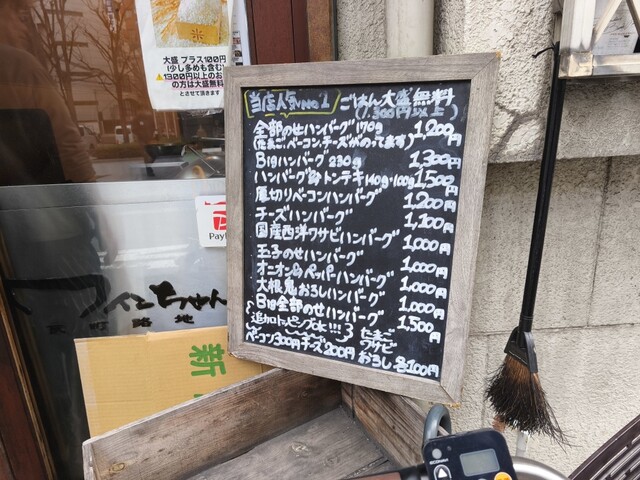 大盛 プラス100円
(少し多めも含む)
1300円以上のお
の方は大盛無料
とさせて頂きます
当店人気No1 ごはん大盛無料
(1,300円以上)
全部のせハンバーグ170g 1,200円
(たまご、ベーコン、チーズがのってます)
Bigハンバーグ 230g 1,300円
ハンバーグ&トンテキ140g・100g 1,500円
厚切りベーコンハンバーグ 1,200円
チーズハンバーグ 1,100円
国産西洋ワサビハンバーグ 1,000円
玉子のせハンバーグ 1,000円
オニオン&ペッパーハンバーグ 1,000円
大根鬼おろしハンバーグ 1,000円
Big全部のせハンバーグ 1,500円
追加トッピング!!! たまご
ワサビ
ベーコン300円 チーズ200円 おろし 各100円
Pay
ワインちゃん
町 路地
新